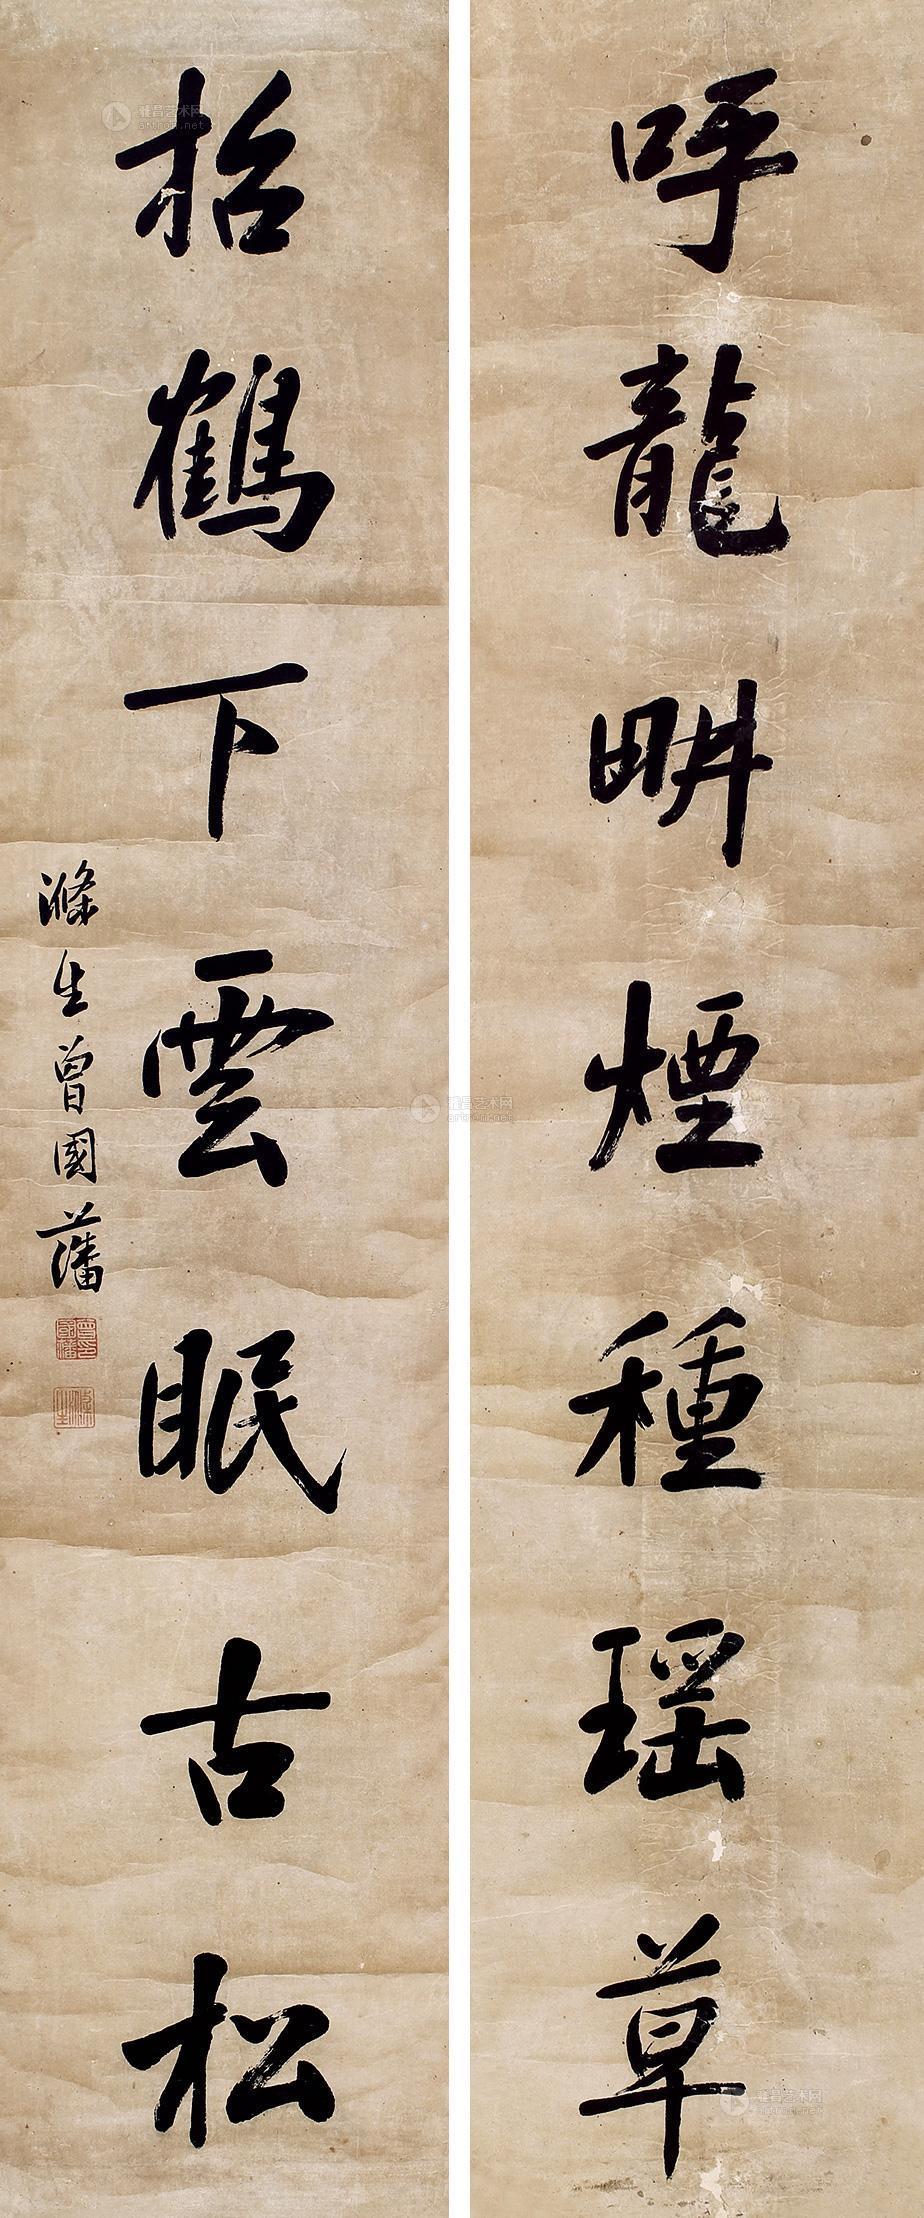 呼龍畊煙種瑶草
招鶴下雲眠古松
滌生曾國藩
雅昌艺术网
artron.net
雅昌艺术网
artron.net
雅昌艺术网
artron.net